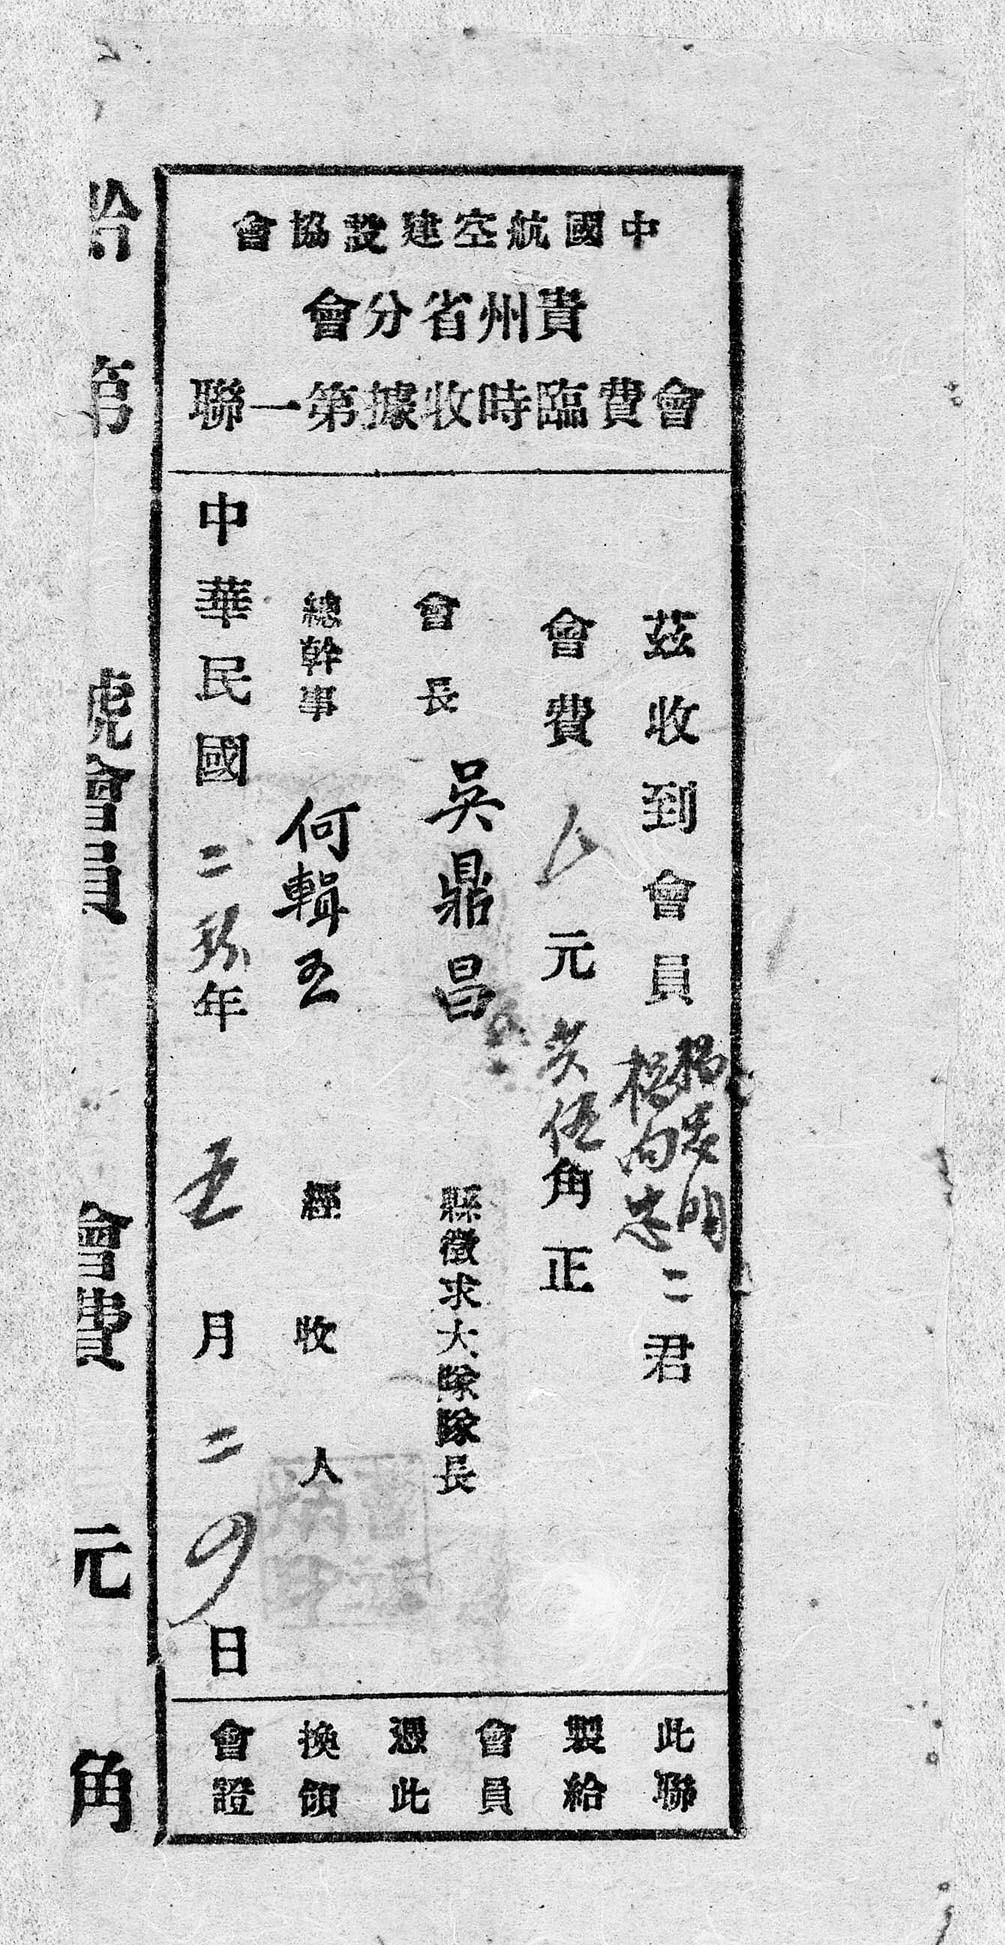 中國航空建設協會
貴州省分會
會費臨時收據第一聯
茲收到會員 楊 明 楊向忠 二君
會費 元 伍角正
會長 吳鼎昌 縣徵求大隊隊長
總幹事 何輯五 經收人
中華民國二 年五月二 日
此聯
製給
會員
憑此
換領
會證
給第號會員會費元角